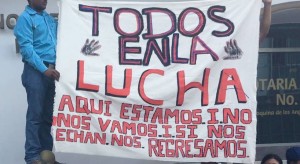 TODOS
EN LA
LUCHA
AQUI ESTAMOS.I.NO
NOS VAMOS.I.SI NOS
ECHAN.NOS.REGRESAMOS
NO
ITARIA
No.